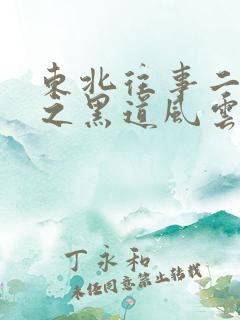 東北往事二
之黑道風雲
丁永和
未经同意禁止转载